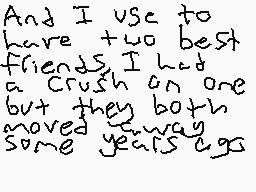 And I use to
have two best
friends, I had
a crush on one
but they both
moved away
some years ago